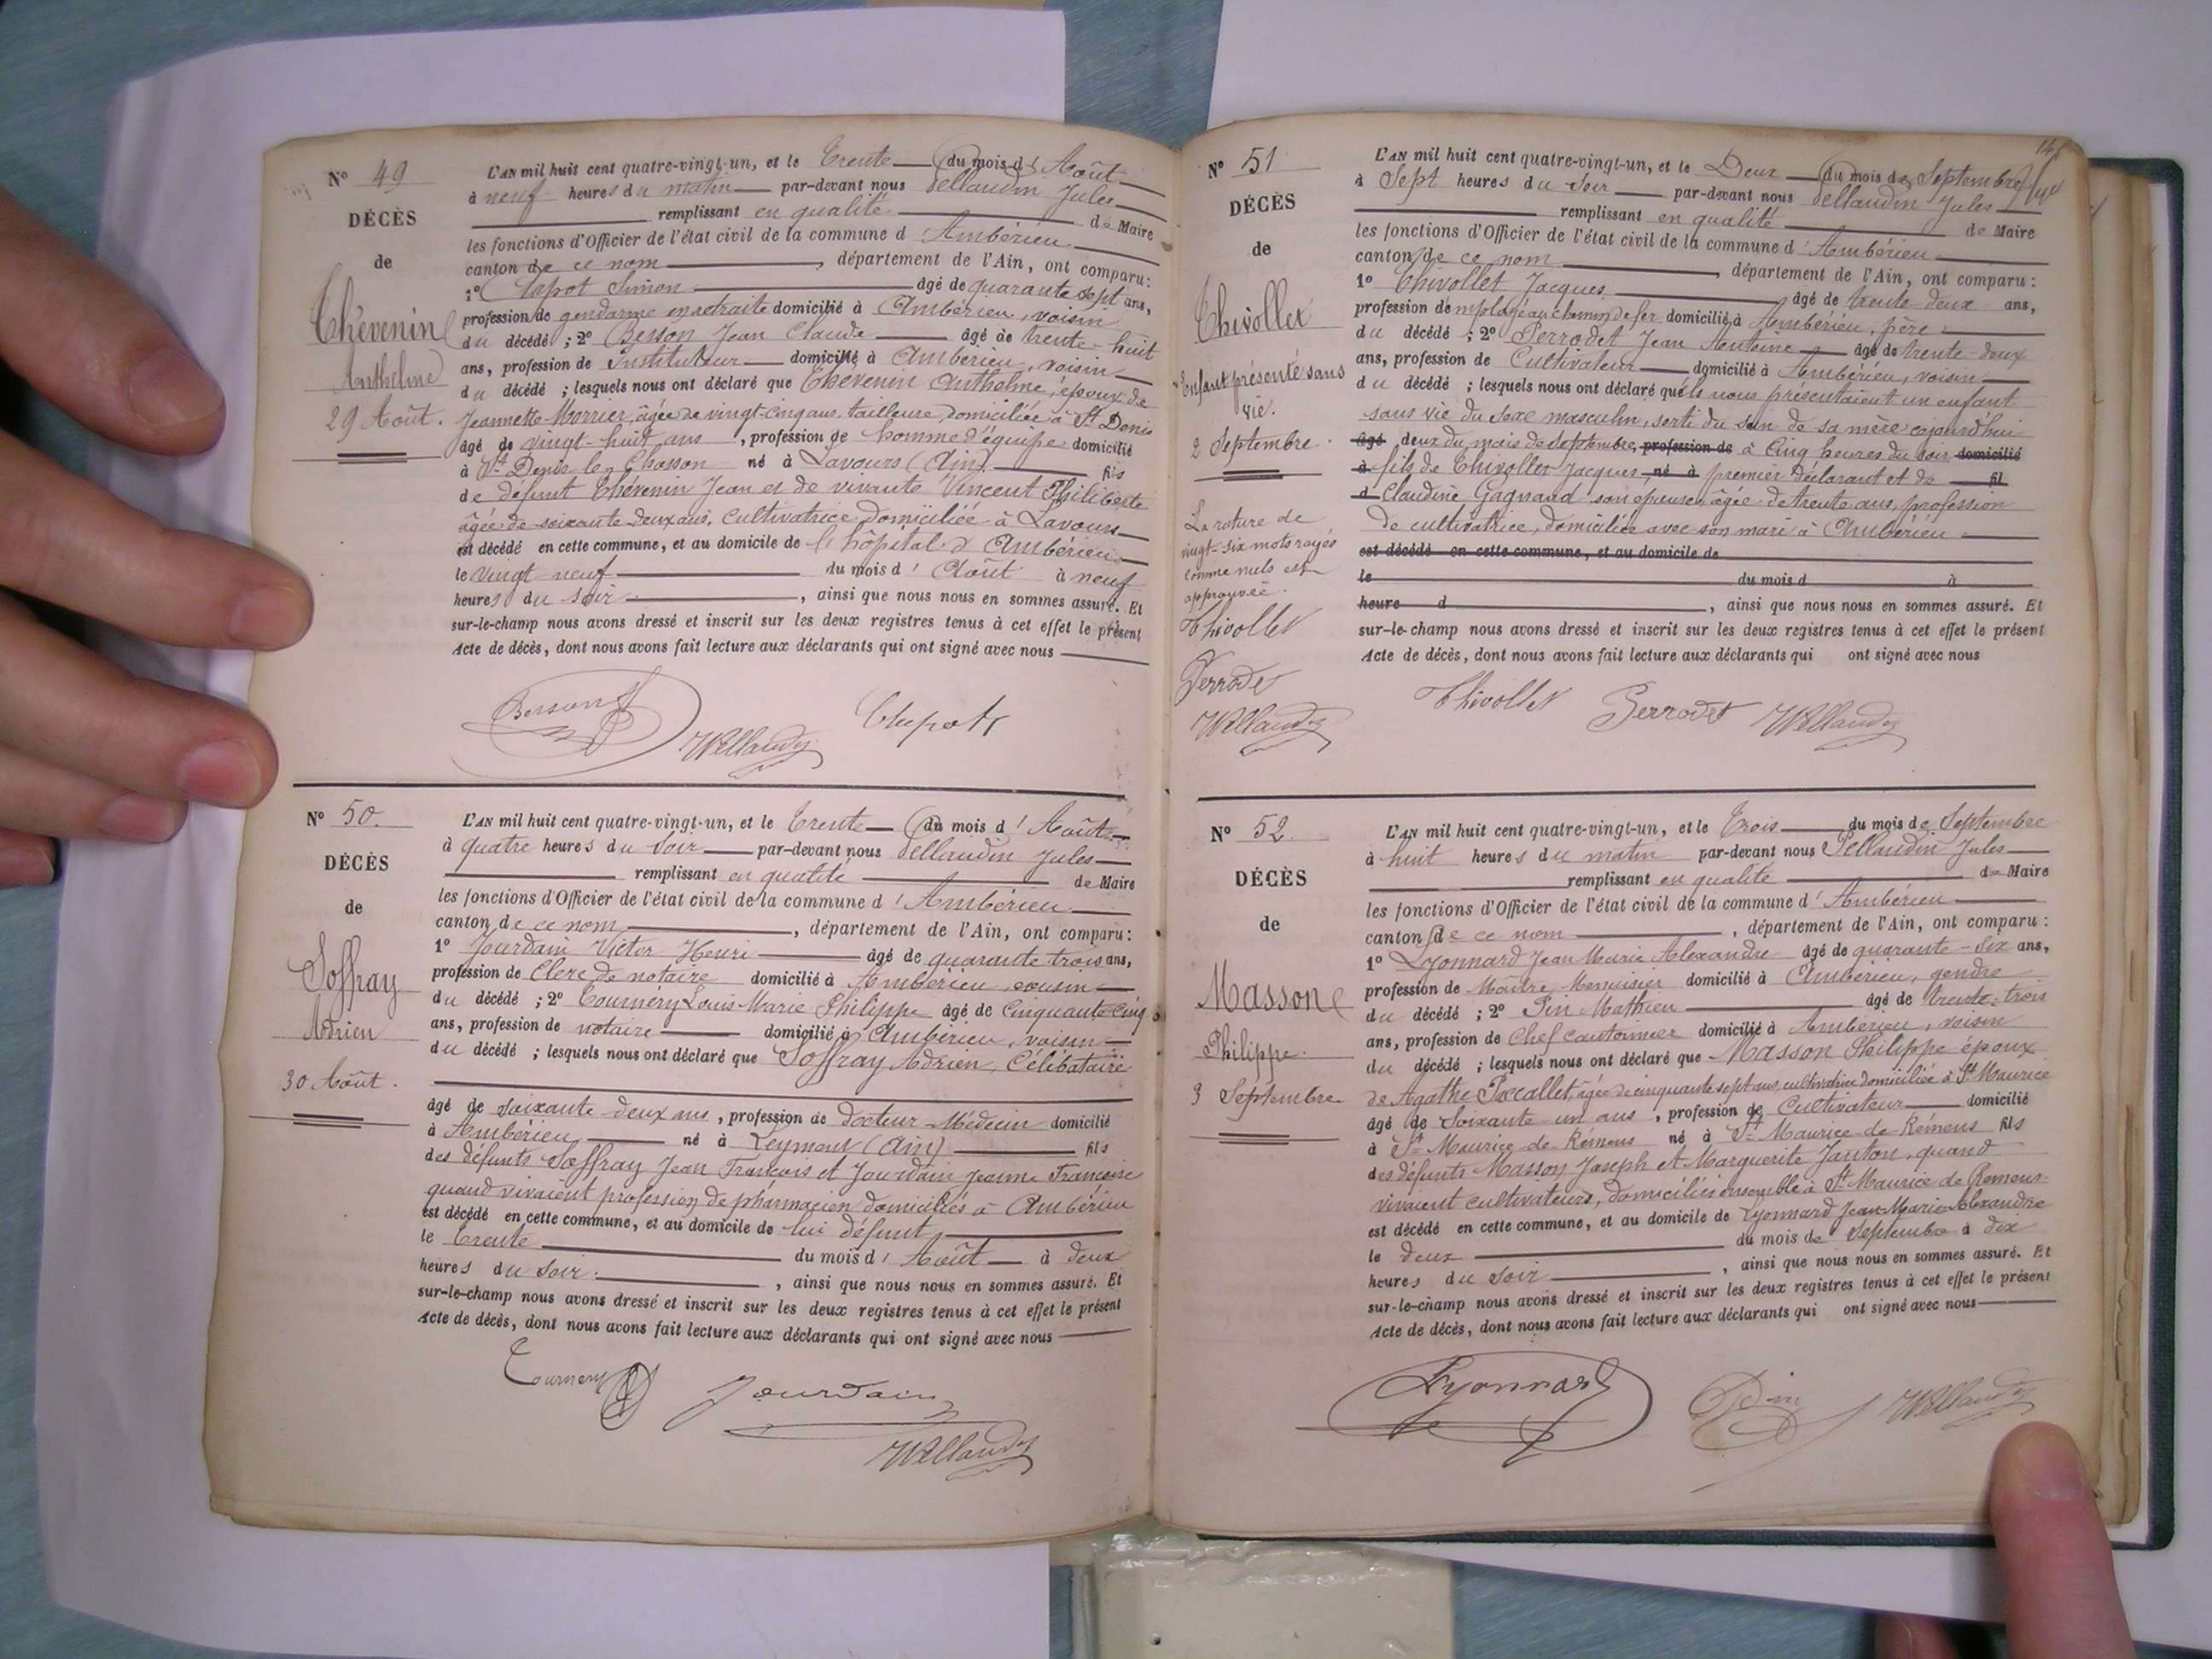 N° 49
DÉCÈS
de
Thévenin
Anthelme
29 Août.
L'AN mil huit cent quatre-vingt-un, et le Trente du mois d'Août
à neuf heures du matin par-devant nous Pellaudin Jules
remplissant en qualité de Maire
les fonctions d'Officier de l'état civil de la commune d'Ambérieu
canton de ce nom, département de l'Ain, ont comparu:
1° Simon âgé de quarante sept ans,
profession de gendarme en retraite domicilié à Ambérieu, voisin
du décédé ; 2° Besson Jean Claude âgé de trente-huit
ans, profession de Instituteur domicilié à Ambérieu, voisin
du décédé ; lesquels nous ont déclaré que Thévenin Anthelme, époux de
Jeannette âgée de vingt-cinq ans, tailleuse, domiciliée à St Denis
âgé de vingt-huit ans, profession de homme d'équipe domicilié
à St Denis le Chosson né à Lavours (Ain). fils
de défunt Thévenin Jean et de vivante Vincent Philiberte
âgée de soixante deux ans, cultivatrice domiciliée à Lavours
est décédé en cette commune, et au domicile de l'hôpital d'Ambérieu
le vingt neuf du mois d'Août à neuf
heures du soir, ainsi que nous nous en sommes assuré. Et
sur-le-champ nous avons dressé et inscrit sur les deux registres tenus à cet effet le présent
Acte de décès, dont nous avons fait lecture aux déclarants qui ont signé avec nous
Besson
N° 50.
DÉCÈS
de
Soffray
Adrien
30 Août.
L'AN mil huit cent quatre-vingt-un, et le Trente du mois d'Août
à quatre heures du soir par-devant nous Pellaudin Jules
remplissant en qualité de Maire
les fonctions d'Officier de l'état civil de la commune d'Ambérieu
canton de ce nom, département de l'Ain, ont comparu:
1° Jourdain Victor Henri âgé de quarante trois ans,
profession de Clerc de notaire domicilié à Ambérieu, cousin
du décédé ; 2° Tournery Louis Marie Philippe âgé de Cinquante cinq
ans, profession de notaire domicilié à Ambérieu, voisin
du décédé ; lesquels nous ont déclaré que Soffray Adrien, Célibataire
âgé de soixante deux ans, profession de docteur-Médecin domicilié
à Ambérieu né à Leyment (Ain) fils
des défunts Soffray Jean François et Jourdain Jeanne Françoise
quand vivaient profession de pharmacien domiciliés à Ambérieu
est décédé en cette commune, et au domicile de lui défunt,
le Trente du mois d'Août à deux
heures du soir., ainsi que nous nous en sommes assuré. Et
sur-le-champ nous avons dressé et inscrit sur les deux registres tenus à cet effet le présent
Acte de décès, dont nous avons fait lecture aux déclarants qui ont signé avec nous
Tournery Jourdain
N° 51
DÉCÈS
de
Thivollet
Enfant présenté sans
vie.
2 Septembre.
La rature de
vingt-six mots rayés
comme nuls est
approuvée.
Thivollet
Perrodet
L'AN mil huit cent quatre-vingt-un, et le Deux du mois de Septembre
à Sept heures du soir par-devant nous Pellaudin Jules
remplissant en qualité de Maire
les fonctions d'Officier de l'état civil de la commune d'Ambérieu
canton de ce nom, département de l'Ain, ont comparu:
1° Thivollet Jacques âgé de trente-deux ans,
profession d'employé au chemin de fer domicilié à Ambérieu, père
du décédé ; 2° Perrodet Jean Antoine âgé de trente-deux
ans, profession de Cultivateur domicilié à Ambérieu, voisin
du décédé ; lesquels nous ont déclaré qu'ils nous présentaient un enfant
sans vie du sexe masculin, sorti du sein de sa mère cejourd'hui
âgé deux du mois de septembre, profession de à Cinq heures du soir domicilié
à fils de Thivollet Jacques né à premier déclarant et de fil
d Claudine Gagnaud son épouse, âgée de trente ans, profession
de cultivatrice, domiciliée avec son mari à Ambérieu
est décédé en cette commune, et au domicile de
le du mois d à
heure d, ainsi que nous nous en sommes assuré. Et
sur-le-champ nous avons dressé et inscrit sur les deux registres tenus à cet effet le présent
Acte de décès, dont nous avons fait lecture aux déclarants qui ont signé avec nous
Thivollet Perrodet
N° 52
DÉCÈS
de
Masson
Philippe.
3 Septembre
L'AN mil huit cent quatre-vingt-un, et le Trois du mois de Septembre
à huit heures du matin par-devant nous Pellaudin Jules
remplissant en qualité de Maire
les fonctions d'Officier de l'état civil de la commune d'Ambérieu
canton de ce nom, département de l'Ain, ont comparu:
1° Lyonnard Jean Marie Alexandre âgé de quarante-six ans,
profession de Maître Menuisier domicilié à Ambérieu, gendre
du décédé ; 2° Pin Mathieu âgé de trente-trois
ans, profession de Chef cantonnier domicilié à Ambérieu, voisin
du décédé ; lesquels nous ont déclaré que Masson Philippe époux
de Agathe âgée de cinquante sept ans, cultivatrice domiciliée à St Maurice
âgé de Soixante un ans, profession de Cultivateur domicilié
à St Maurice de Rémens né à St Maurice de Rémens fils
des défunts Masson Joseph et Marguerite Janton, quand
vivaient cultivateurs, domiciliés ensemble à St Maurice de Remens
est décédé en cette commune, et au domicile de Lyonnard Jean-Marie Alexandre
le deux du mois de Septembre à dix
heures du soir, ainsi que nous nous en sommes assuré. Et
sur-le-champ nous avons dressé et inscrit sur les deux registres tenus à cet effet le présent
Acte de décès, dont nous avons fait lecture aux déclarants qui ont signé avec nous
Lyonnard Pin